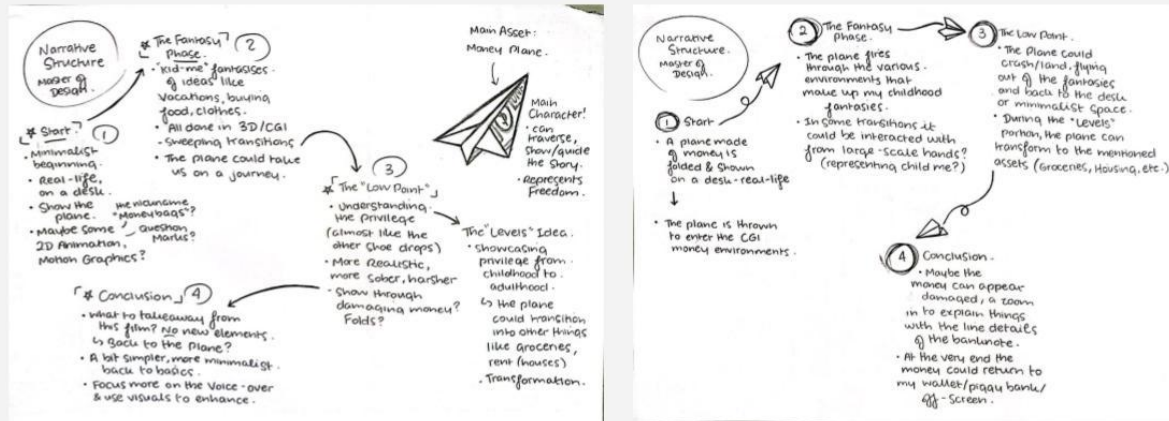 Narrative
Structure
Master of
Design.
* Start. 1
• Minimalist
beginning.
• Real-life,
on a desk.
• Show the
plane. the nickname
"Moneybags"?
• Maybe some question
2D Animation, Marks?
Motion Graphics?
* The Fantasy 2
Phase.
• "Kid-me" fantasises
of ideas like
vacations, buying
food, clothes.
• All done in 3D/CGI
- sweeping transitions
• The plane could take
us on a journey.
3
* The "Low Point"
• Understanding
the privilege
(almost like the
other shoe drops)
• More Realistic,
more sober, harsher
- Show through
damaging money?
Folds?
The "Levels" Idea.
• Showcasing
privilege from
childhood to
adulthood.
↳ the plane
could transition
into other things
like groceries,
rent (houses)
• Transformation.
* Conclusion 4
• What to takeaway from
this film? No new elements.
↳ Back to the Plane?
• A bit simpler, more minimalist.
back to basics.
• Focus more on the Voice-over
& use visuals to enhance.
Main Asset:
Money Plane.
Main
Character!
• can
traverse,
show/guide
the story.
• Represents
Freedom.
Narrative
Structure
Master of
Design.
1 Start
• A plane made
of money is
folded & shown
on a desk - real-life
• The plane is thrown
to enter the CGI
money environments.
2 The Fantasy
Phase.
• The plane flies
through the various
environments that
make up my childhood
fantasies.
• In some transitions it
could be interacted with
from large-scale hands?
(representing child me?)
3 The Low Point.
• The Plane could
crash/land, flying
out of the fantasies
and back to the desk
or minimalist space.
• During the "Levels"
portion, the plane can
transform to the mentioned
assets (Groceries, Housing, etc.)
4 Conclusion.
• Maybe the
money can appear
damaged, a zoom
in to explain things
with the line details
of the banknote.
• At the very end the
money could return to
my wallet/piggy bank/
off-screen.